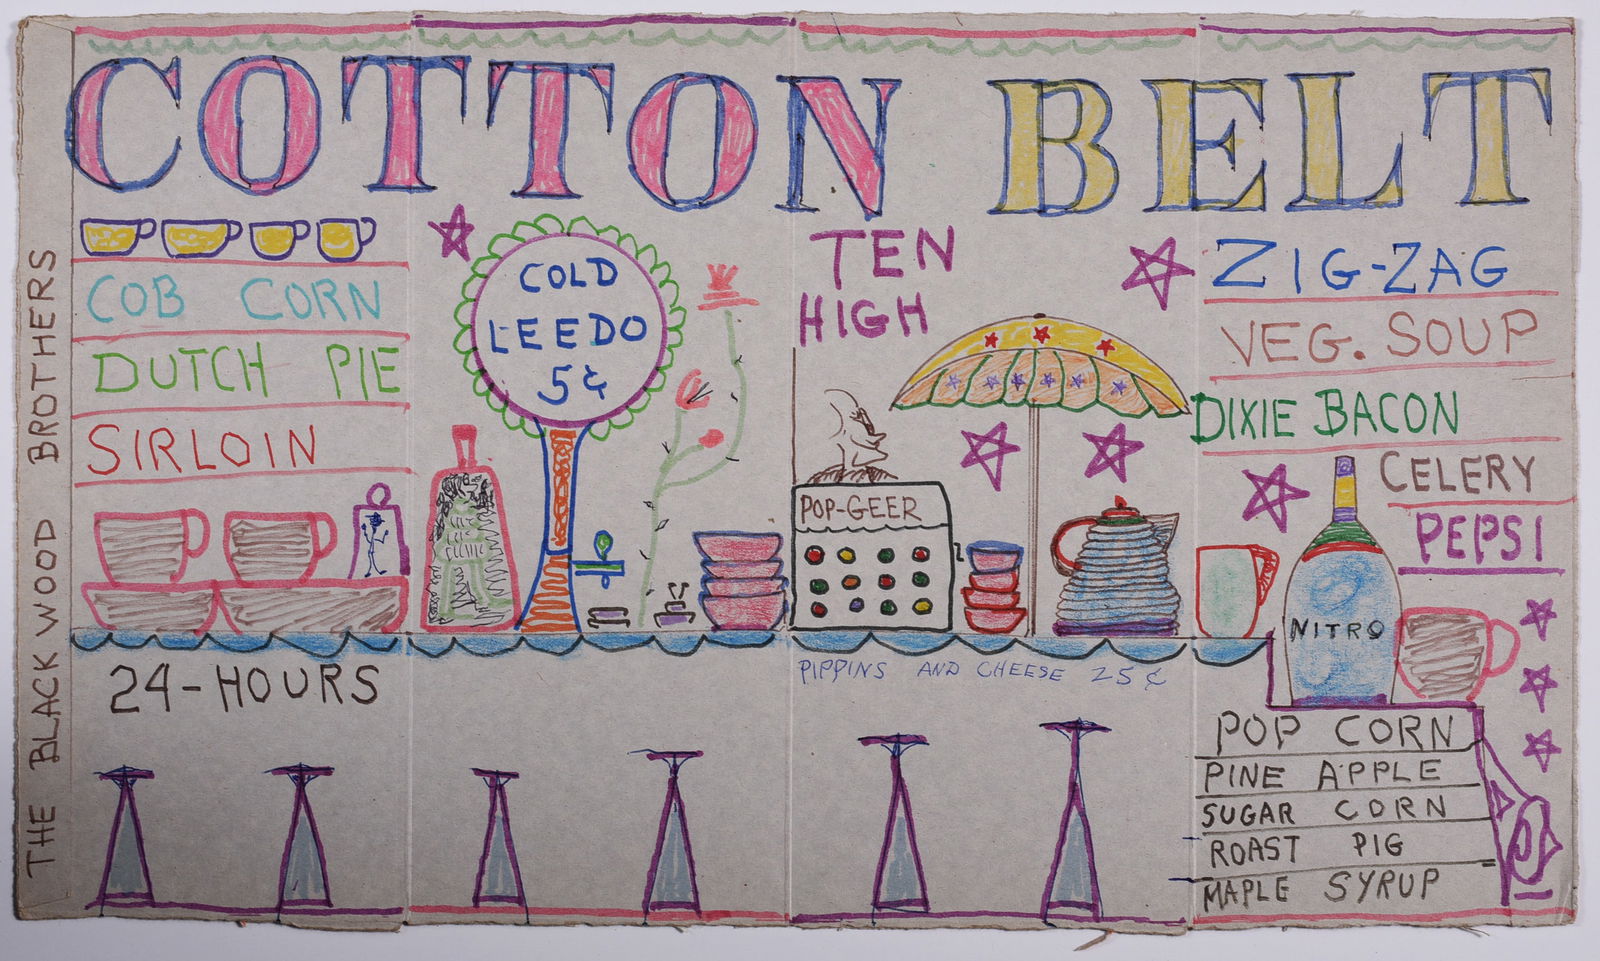 COTTON BELT
THE BLACK WOOD BROTHERS
COB CORN
DUTCH PIE
SIRLOIN
COLD
LEEDO
5¢
TEN
HIGH
POP-GEER
ZIG-ZAG
VEG. SOUP
DIXIE BACON
CELERY
PEPSI
NITRO
24-HOURS
PIPPINS AND CHEESE 25¢
POP CORN
PINE APPLE
SUGAR CORN
ROAST PIG
MAPLE SYRUP